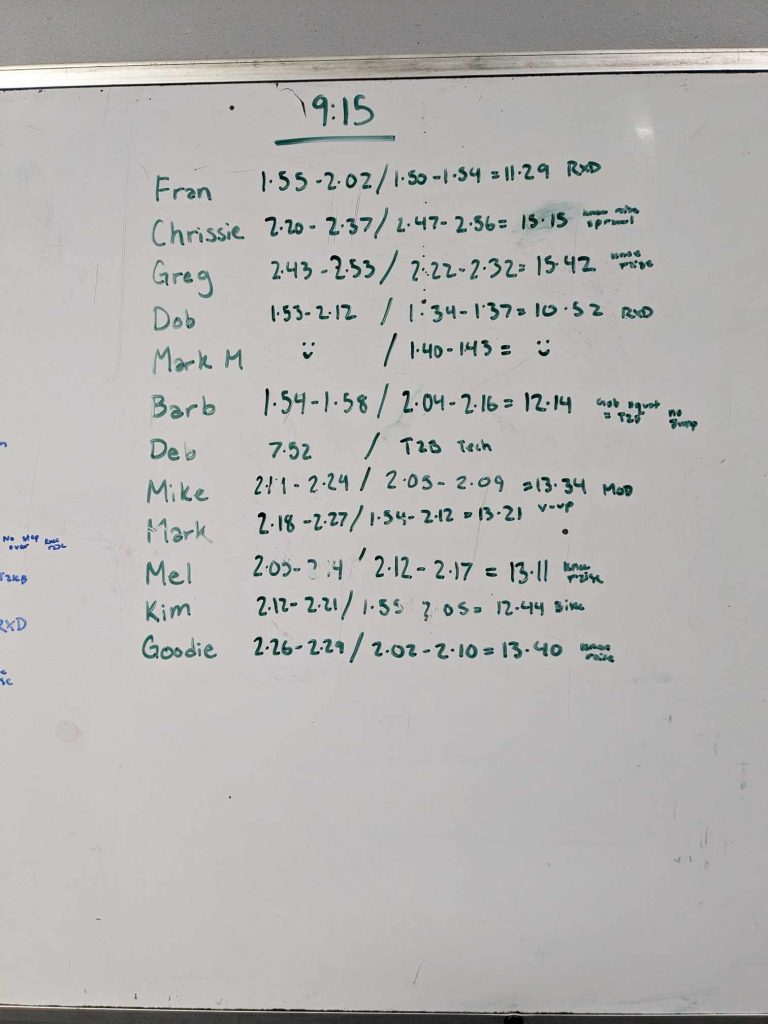 9:15
Fran 1.55-2.02/1.50-1.54=11.29 RXD
Chrissie 2.20-2.37/2.47-2.56=15.15 knee raise sprawl
Greg 2.43-2.53/2.22-2.32=15.42 knee raise
Dob 1.53-2.12 / 1.34-1.37=10.52 RXD
Mark M / 1.40-1.43=
Barb 1.54-1.58/2.04-2.16=12.14 squat = T2B no jump
Deb 7.52 / T2B Tech
Mike 2.11-2.24/2.05-2.09=13.34 MOD
Mark 2.18-2.27/1.54-2.12=13.21 V-up
Mel 2.12-2.17=13.11 knee raise
Kim 2.12-2.21/ 12.44 Bike
Goodie 2.26-2.29/2.02-2.10=13.40 knee raise
No step over knee raise
T2KB
RXD